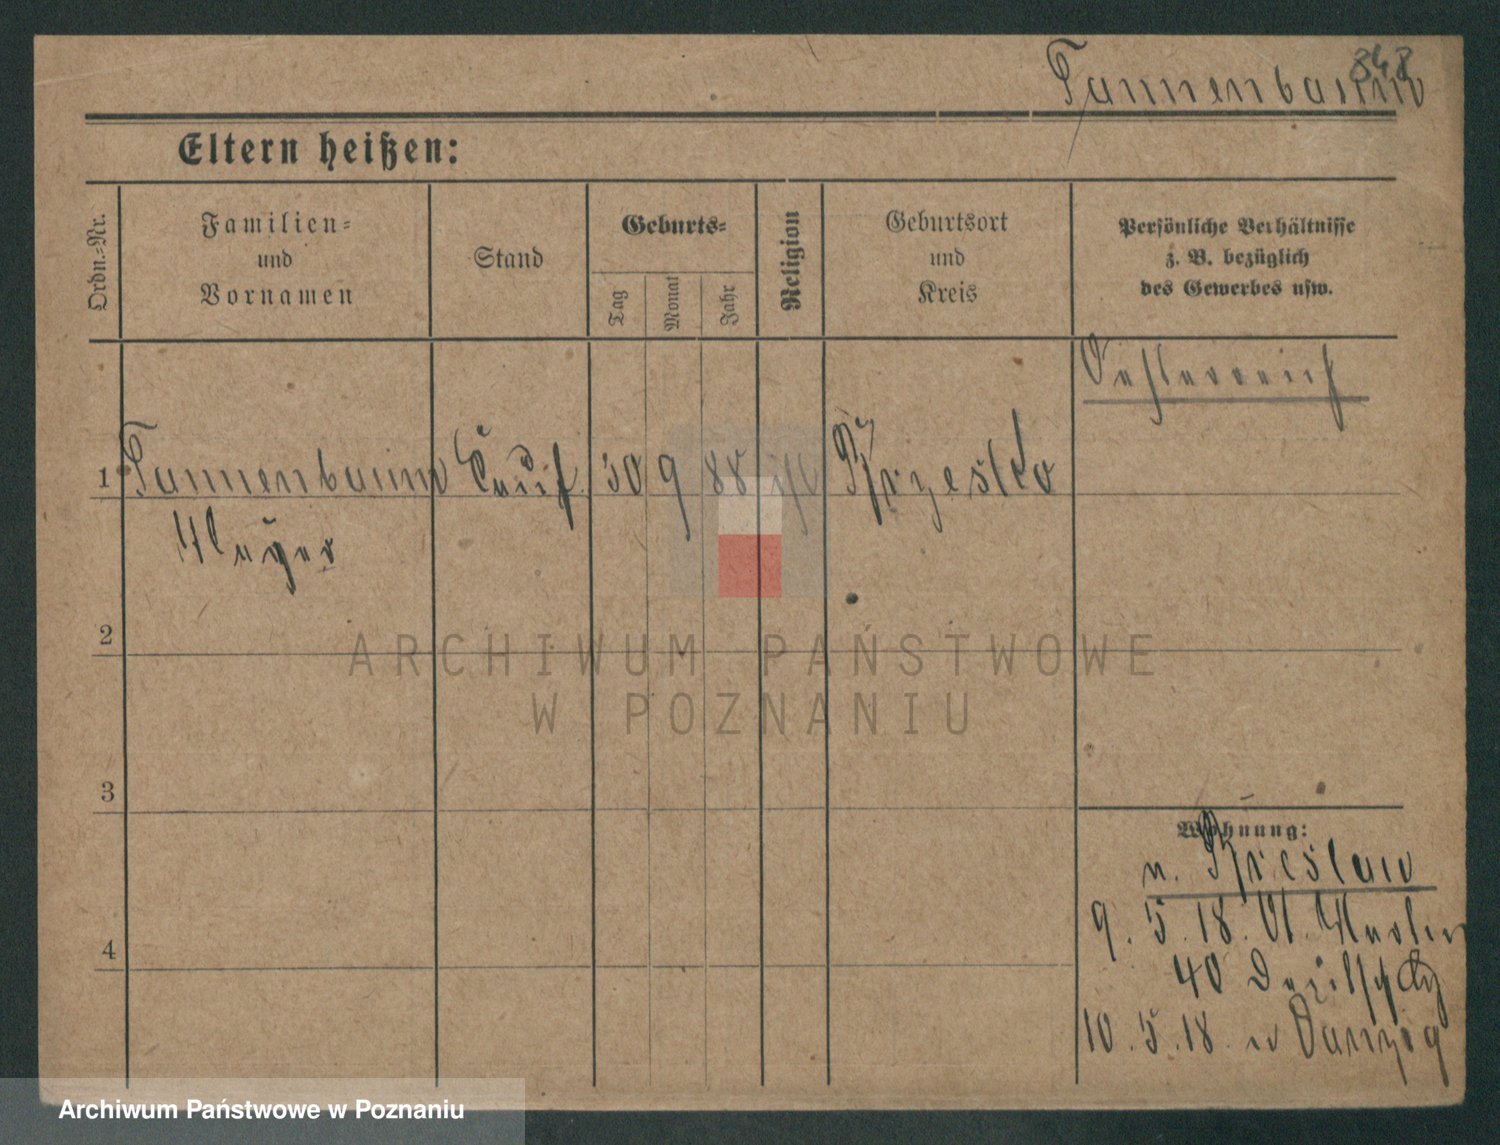 848
Tannenbaum
Eltern heißen:
Ordn.-Nr.
Familien-
und
Vornamen
Stand
Geburts-
Tag
Monat
Jahr
Religion
Geburtsort
und
Kreis
Persönliche Verhältnisse
z. B. bezüglich
des Gewerbes usw.
Oesterreich
1 Tannenbaum Kauf. 30 9 88
Mayer
2
3
4
Wohnung:
n. Breslau
9. 5. 18. St. Martin
40
10. 5. 18. n Danzig
ARCHIWUM PAŃSTWOWE
W POZNANIU
Archiwum Państwowe w Poznaniu